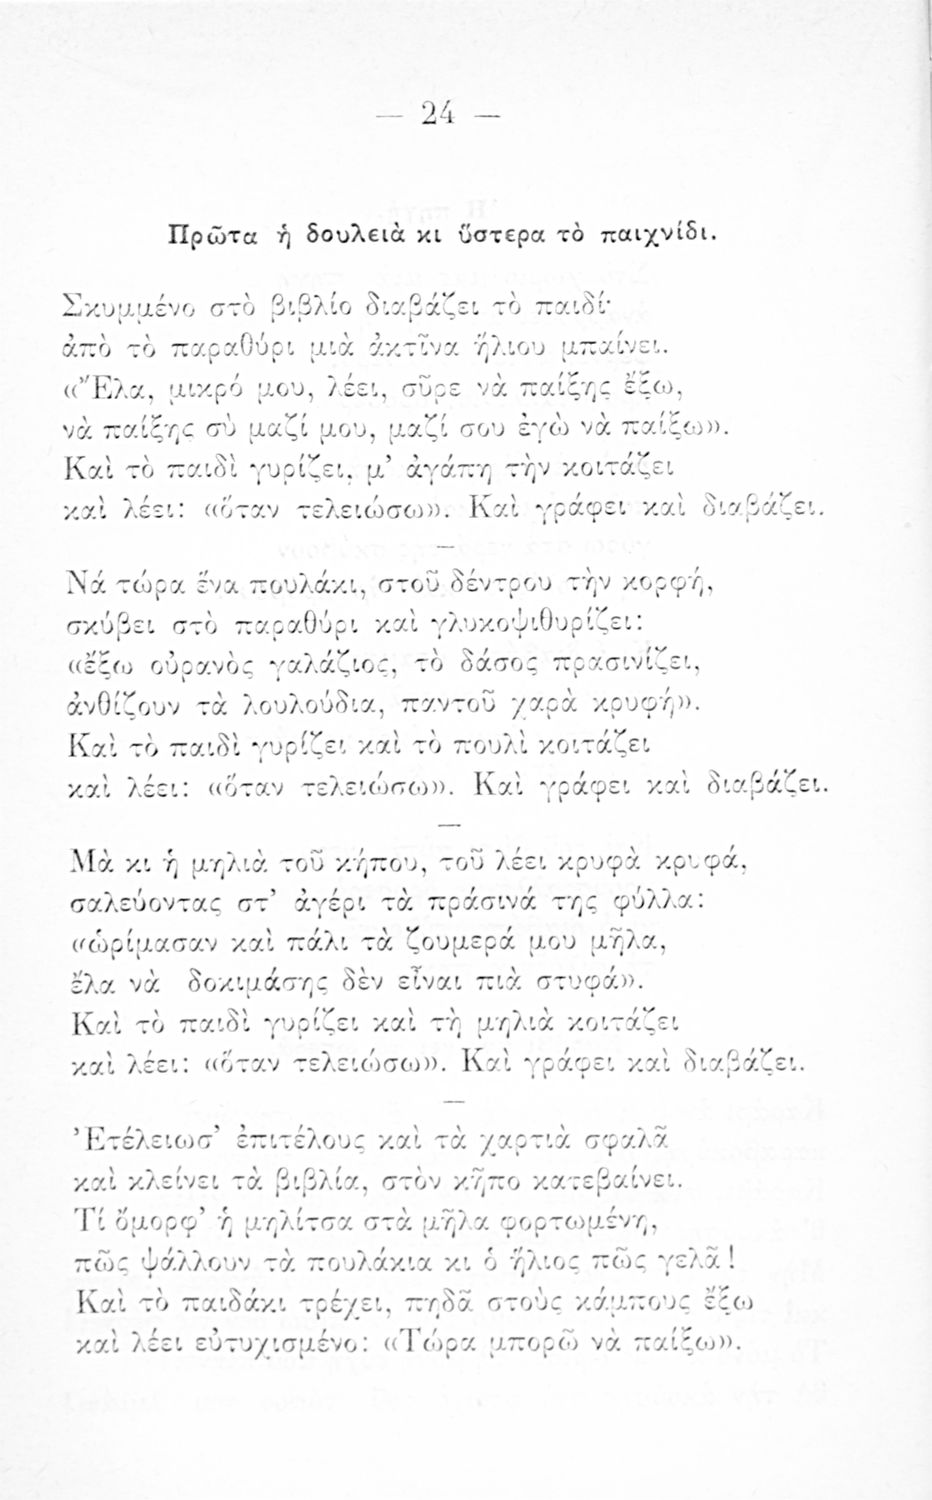 — 24 —
Πρῶτα ἡ δουλειὰ κι ὕστερα τὸ παιχνίδι.
Σκυμμένο στὸ βιβλίο διαβάζει τὸ παιδί·
ἀπὸ τὸ παραθύρι μιὰ ἀκτῖνα ἥλιου μπαίνει.
«Ἔλα, μικρό μου, λέει, σῦρε νὰ παίξῃς ἔξω,
νὰ παίξῃς σὺ μαζί μου, μαζί σου ἐγὼ νὰ παίξω».
Καὶ τὸ παιδὶ γυρίζει, μ’ ἀγάπη τὴν κοιτάζει
καὶ λέει: «ὅταν τελειώσω». Καὶ γράφει καὶ διαβάζει.
—
Νά τώρα ἕνα πουλάκι, στοῦ δέντρου τὴν κορφή,
σκύβει στὸ παραθύρι καὶ γλυκοψιθυρίζει:
«ἔξω οὐρανὸς γαλάζιος, τὸ δάσος πρασινίζει,
ἀνθίζουν τὰ λουλούδια, παντοῦ χαρὰ κρυφή».
Καὶ τὸ παιδὶ γυρίζει καὶ τὸ πουλὶ κοιτάζει
καὶ λέει: «ὅταν τελειώσω». Καὶ γράφει καὶ διαβάζει.
—
Μὰ κι ἡ μηλιὰ τοῦ κήπου, τοῦ λέει κρυφὰ κρυφά,
σαλεύοντας στ’ ἀγέρι τὰ πράσινά της φύλλα:
«ὡρίμασαν καὶ πάλι τὰ ζουμερά μου μῆλα,
ἔλα νὰ δοκιμάσῃς δὲν εἶναι πιὰ στυφά».
Καὶ τὸ παιδὶ γυρίζει καὶ τὴ μηλιὰ κοιτάζει
καὶ λέει: «ὅταν τελειώσω». Καὶ γράφει καὶ διαβάζει.
—
Ἐτέλειωσ’ ἐπιτέλους καὶ τὰ χαρτιὰ σφαλᾶ
καὶ κλείνει τὰ βιβλία, στὸν κῆπο κατεβαίνει.
Τί ὄμορφ’ ἡ μηλίτσα στὰ μῆλα φορτωμένη,
πῶς ψάλλουν τὰ πουλάκια κι ὁ ἥλιος πῶς γελᾶ!
Καὶ τὸ παιδάκι τρέχει, πηδᾶ στοὺς κάμπους ἔξω
καὶ λέει εὐτυχισμένο: «Τώρα μπορῶ νὰ παίξω».